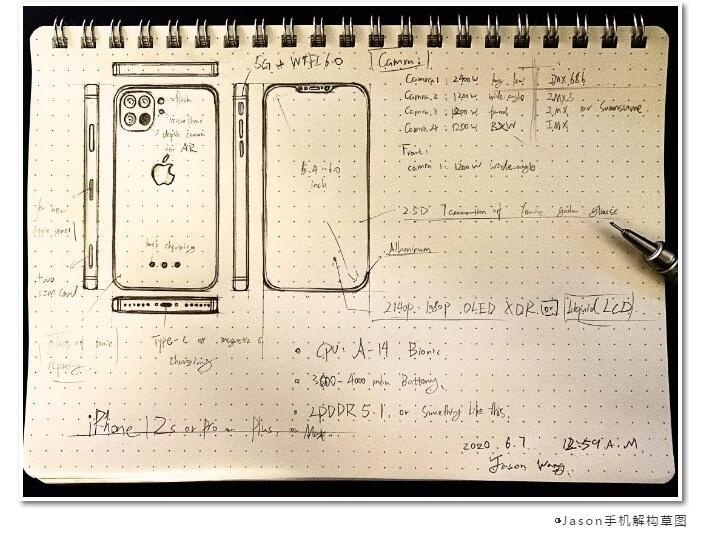 5G + WIFI 6.0
Camera:
Camera 1: 2400W IMX 686
Camera 2: 1200W wide angle IMX
Camera 3: 1200W IMX or Sumsumne
Camera 4: 1200W B&W IMX
Front:
camera 1: 1200W wide-angle
flash
depth camera
for AR
5.4-6.0
inch
2.5D 7 generation of
Aluminum
for new
Apple pencil
two
sim card
back charging
2140p. 1980p. OLED XDR or Liquid LCD
Type-C or magnetic C
charging
CPU: A-14 Bionic
3600-4000 mha Battery
LPDDR 5.1. or something like this.
iPhone 12s or Pro or Plus. or Max.
2020. 6. 7. 12:59 A.M.
Jason Wang
Jason手机解构草图